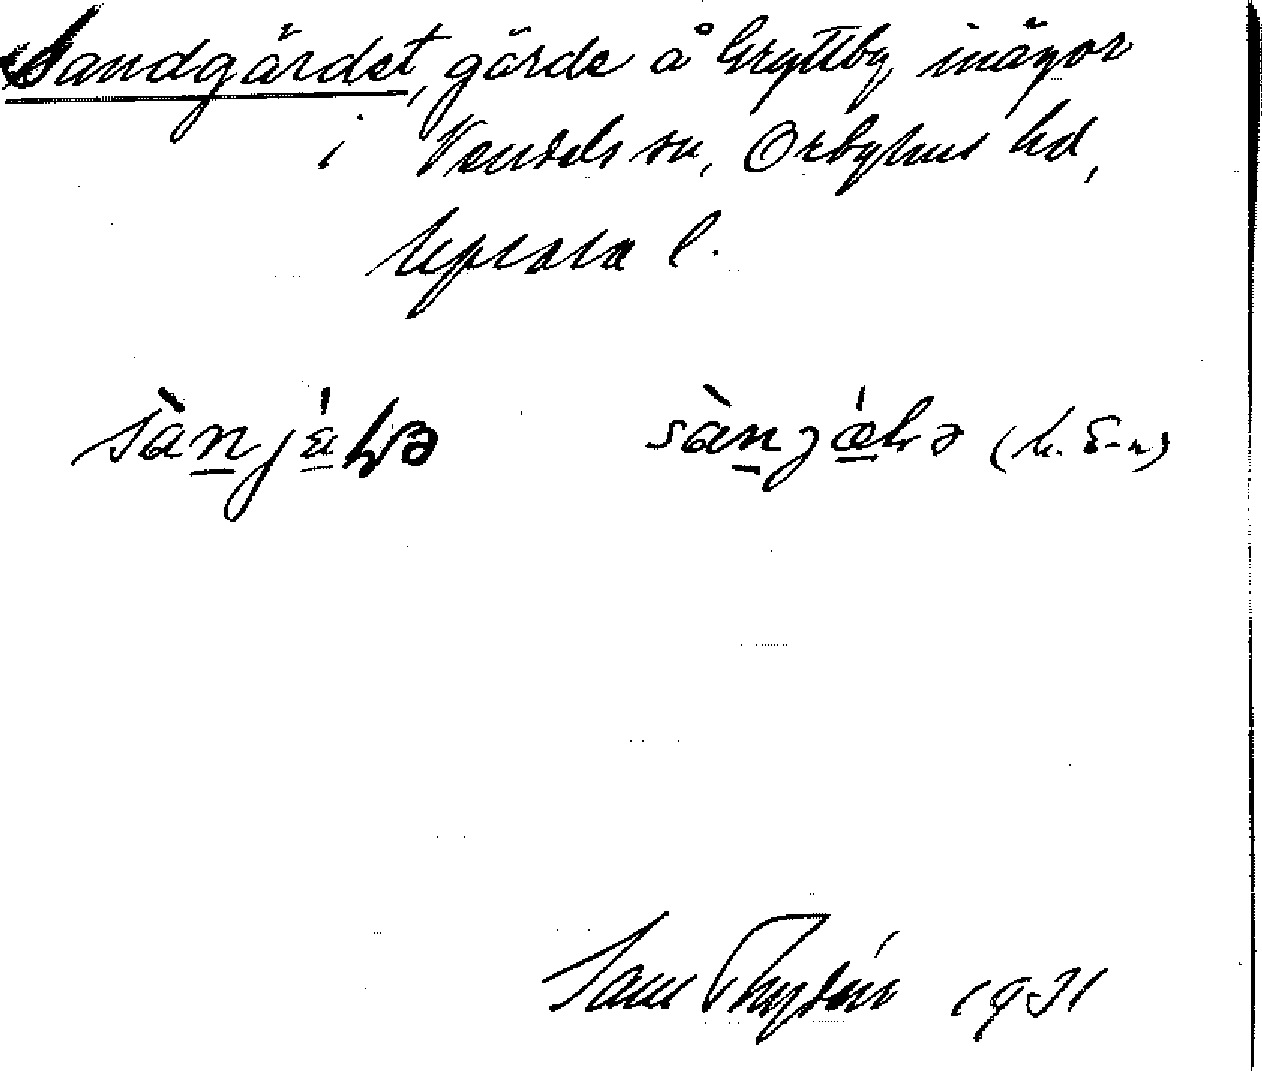 Sandgärdet, gärde å Gryttby inägor
i Vendels sn, Örbyhus hd,
Uppsala l.
sànjä́ḷə sànjǽḷə
Sam Thydén 1931